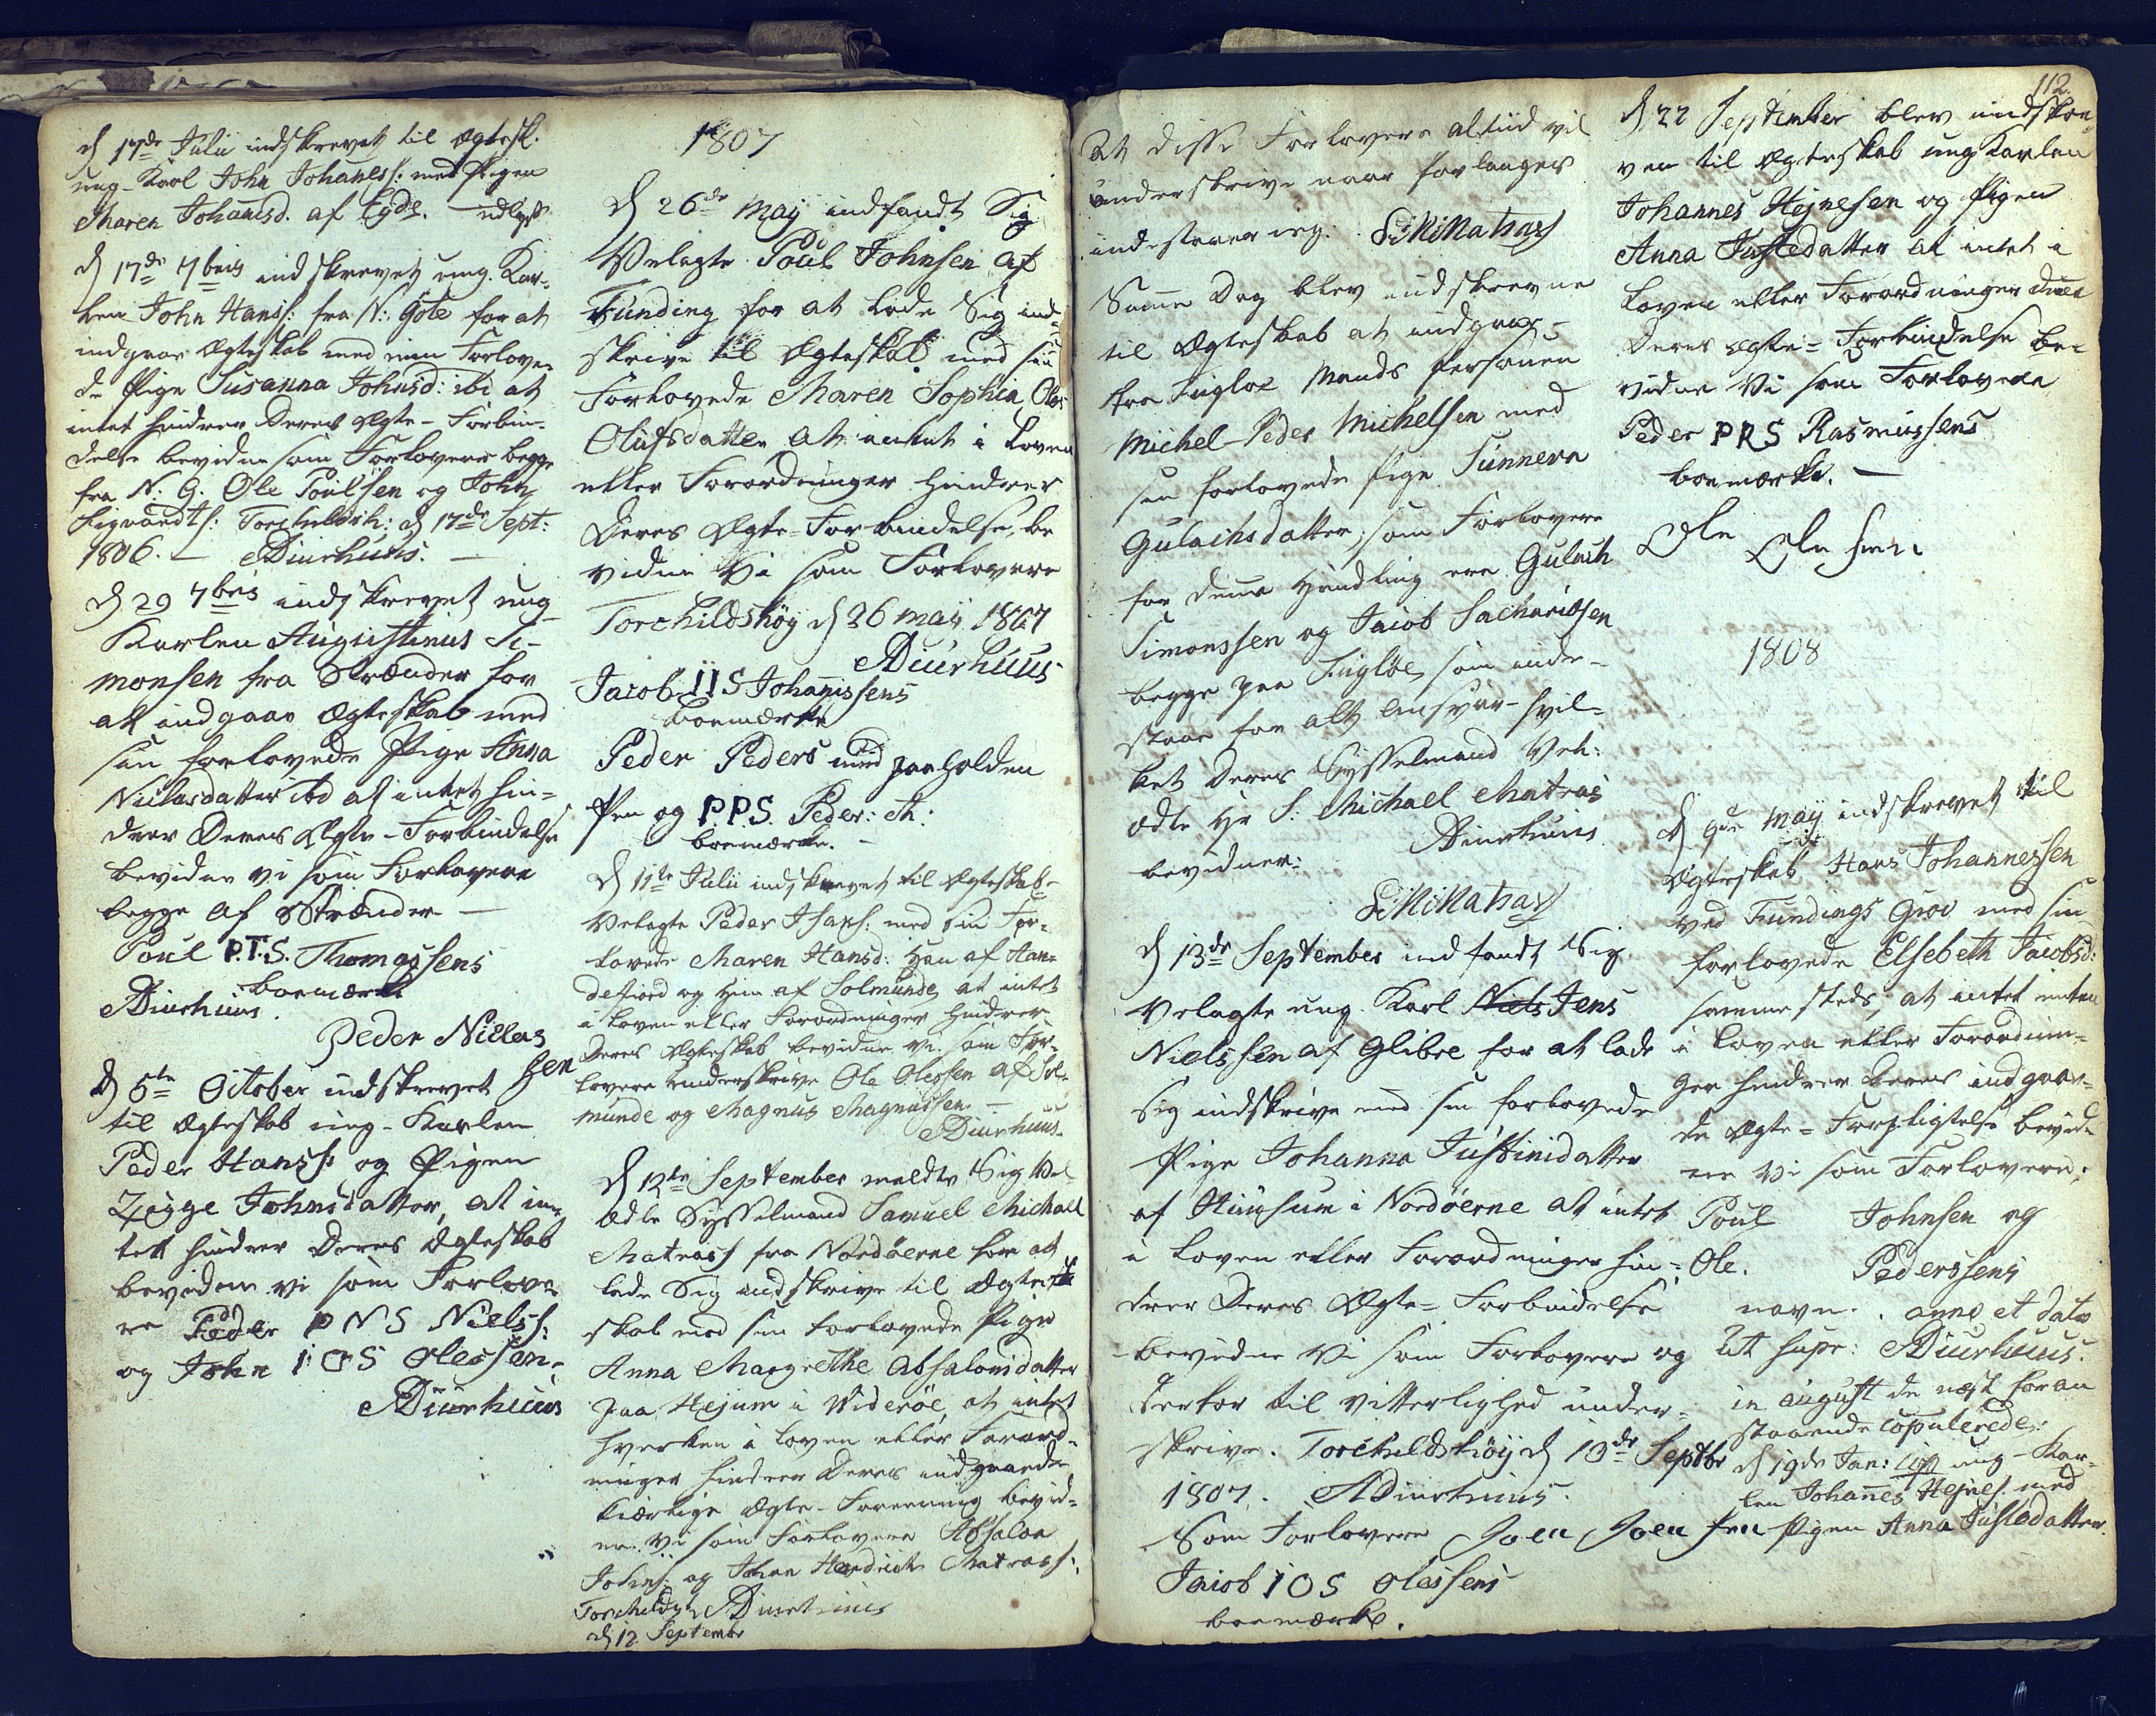 d 17de Julii indskrevet til Ægtesk.
ung-Karl John Johaness: med Pigen
Maren Johañisd. af Eyde. udlyst
d 17de 7bris indskrevet ung Kar-
len John Hanss: fra N: Göte for at
indgaae Ægteskab med sin Forlove-
de Pige Susanna Johnsd: ibd, at
intet hindrer Deres Ægte-Forbin-
delse bevidne som Forlovere begge
fra N: G. Ole Poulsen og John
Sigvardts: Torchildsh: d 17de Sept:
1806. — ADiurhuus. —
d 29 7bris indskrevet ung
Karlen Augustinus Si-
monsen fra Strænder for
at indgaae Ægteskab med
sin forlovede Pige Anna
Niclasdatter ibd at intet hin-
drer Deres Ægte-Forbindelse
bevidne vi som Forlovere
begge af Strænder —
Poul P.T.S. Thomassens
boemærke
ADiurhuus.
Peder Niclas
sen
d 5te October indskrevet
til Ægteskab ung-Karlen
Peder Hanss: og Pigen
Zigge Johnsdatter, at in-
tet hindrer Deres Ægteskab
bevidne vi som Forlove-
re Peder PNS Nielss:
og John IOS Olessen.
ADiurhuus
1807
d 26de May indfandt Sig
Velagte Poul Johnsen af
Funding for at lade Sig ind-
skrive til Ægteskab med sin
Forlovede Maren Sophia
Olufsdatter at intet i Loven
eller Forordninger hindrer
Deres Ægte-Forbindelse, be
vidne Vi som Forlovere
Torchildshöy d 26 may 1807
ADiurhuus
Jacob IIS Johañissens
boemærke
Peder Peders med paaholden
Pen og P.P.S. Peder: et:
boemærke. —
d 11te Julii indskrevet til Ægteskab
Velagte Peder Isaxs: med sin For-
lovede Maren Hansd: Han af Han-
defiord og Hun af Solmunde, at intet
i Loven eller Forordninger hindrer
Deres Ægteskab bevidne vi som For-
lovere underskrive Ole Olessen af Sol-
munde og Magnus Magnussen. —
ADiurhuus.
d 12te September meldte Sig Vel-
ædle Sysselmand Samuel Michael
Matrass fra Nordöerne for at
lade Sig indskrive til Ægte-
skab med sin forlovede Pige
Anna Margrethe Absalonsdatter
paa Hejum i Viderøe, at intet
hverken i Loven eller Forord-
ninger hindrer Deres indgaaede
kiærlige Ægte-Foreening bevid-
ne Vi som Forlovere Absalon
Johns: og Johan Hendrich Matrass:
Torchildsh ADiurhuus
d 12 September
112.
At disse Forlovere altiid vil
underskrive naar forlanges
indestaaer ieg: SMMatras
Samme Dag blev indskrevne
til Ægteskab at indgaae
fra Fugloe Mands Personen
Michel-Peder Michelsen med
sin forlovede Pige Sunneva
Gulachsdatter; som Forlovere
for denne Handling ere Gulach
Simonssen og Jacob Sachariæsen
begge paa Fugloe, som inde-
staae for alt Ansvar hvil-
ket Deres Sysselmand Vel:
ædle Hr S. Michael Matras
bevidner: ADiurhuus
SMMatras
d 13de September indfandt Sig
Velagte ung Karl Niels Jens
Nielssen af Glibre for at lade
sig indskrive med sin forlovede
Pige Johanna Justinidatter
af Husum i Nordöerne at intet
i Loven eller Forordninger hin-
drer Deres Ægte-Forbindelse
bevidne Vi som Forlovere og
derfor til vitterlighed under-
skrive. Torchildshöy d 13de Septbr
1807. ADiurhuus
Som Forlovere Joen Joensen
Jacob IOS Olessens
boemærke.
d 22 September blev indskre-
ven til Ægteskab ung Karlen
Johannes Hejnesen og Pigen
Anna Justedatter at intet i
Loven eller Forordninger
Deres Ægte-Forbindelse be-
vidne Vi som Forlovere
Peder PRS Rasmussens
boemærke. —
Ole Olesen
1808
d 9de May indskrevet til
Ægteskab Hans Johannessen
ved Fundings Grov med sin
forlovede Elsebeth Jacobsd:
sammesteds; at intet enten
i Loven eller Forordnin-
ger hindrer Deres indgaae-
de Ægte-Forpligtelse bevid-
ne Vi som Forlovere:
Poul Johnsen og
Ole. Pederssens
navn. anno et dato
Ut supr: ADiurhuus.
in August de næst foran
staaende copulerede.
d 19de Jan: ung-Kar-
len Johañes Hejnes. med
Pigen Anna Justedatter.